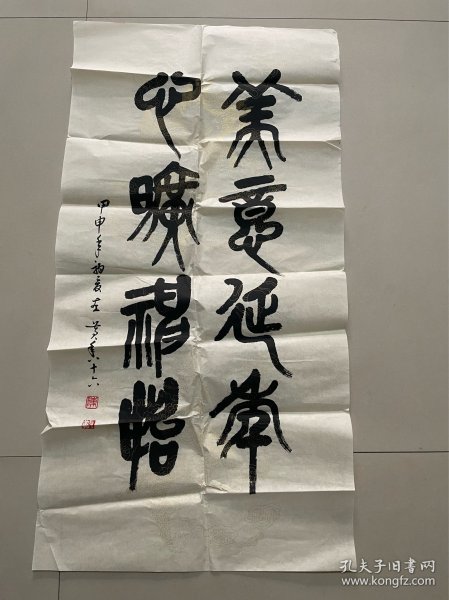 美意延年
心曠神怡
甲申年初夏 八十六
孔夫子旧书网
www.kongfz.com